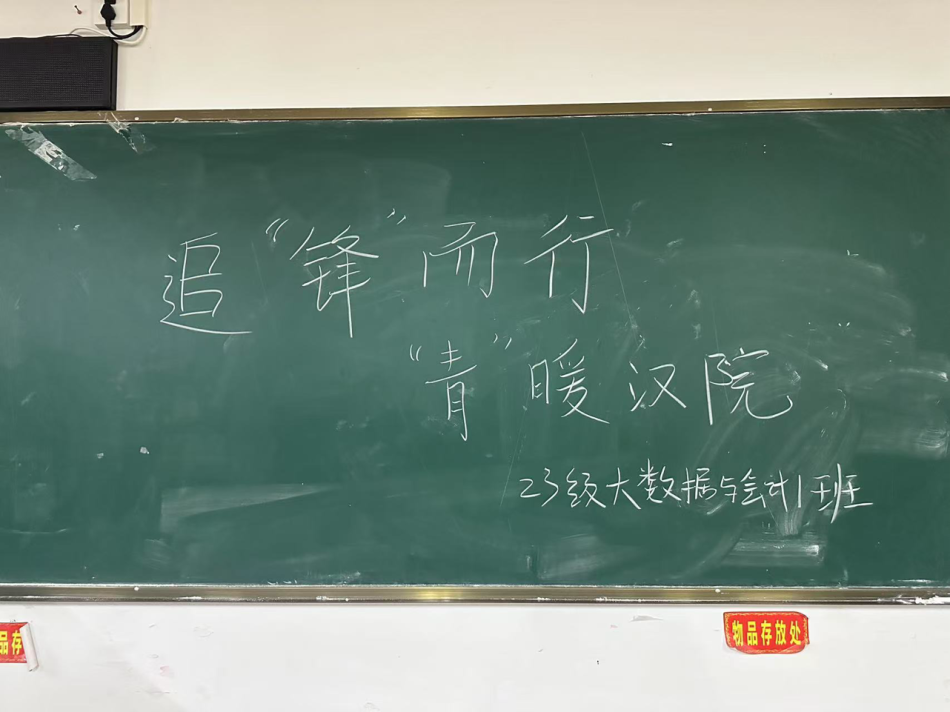 追“锋”而行
“青”暖汉院
23级大数据与会计1班
品存
物品存放处